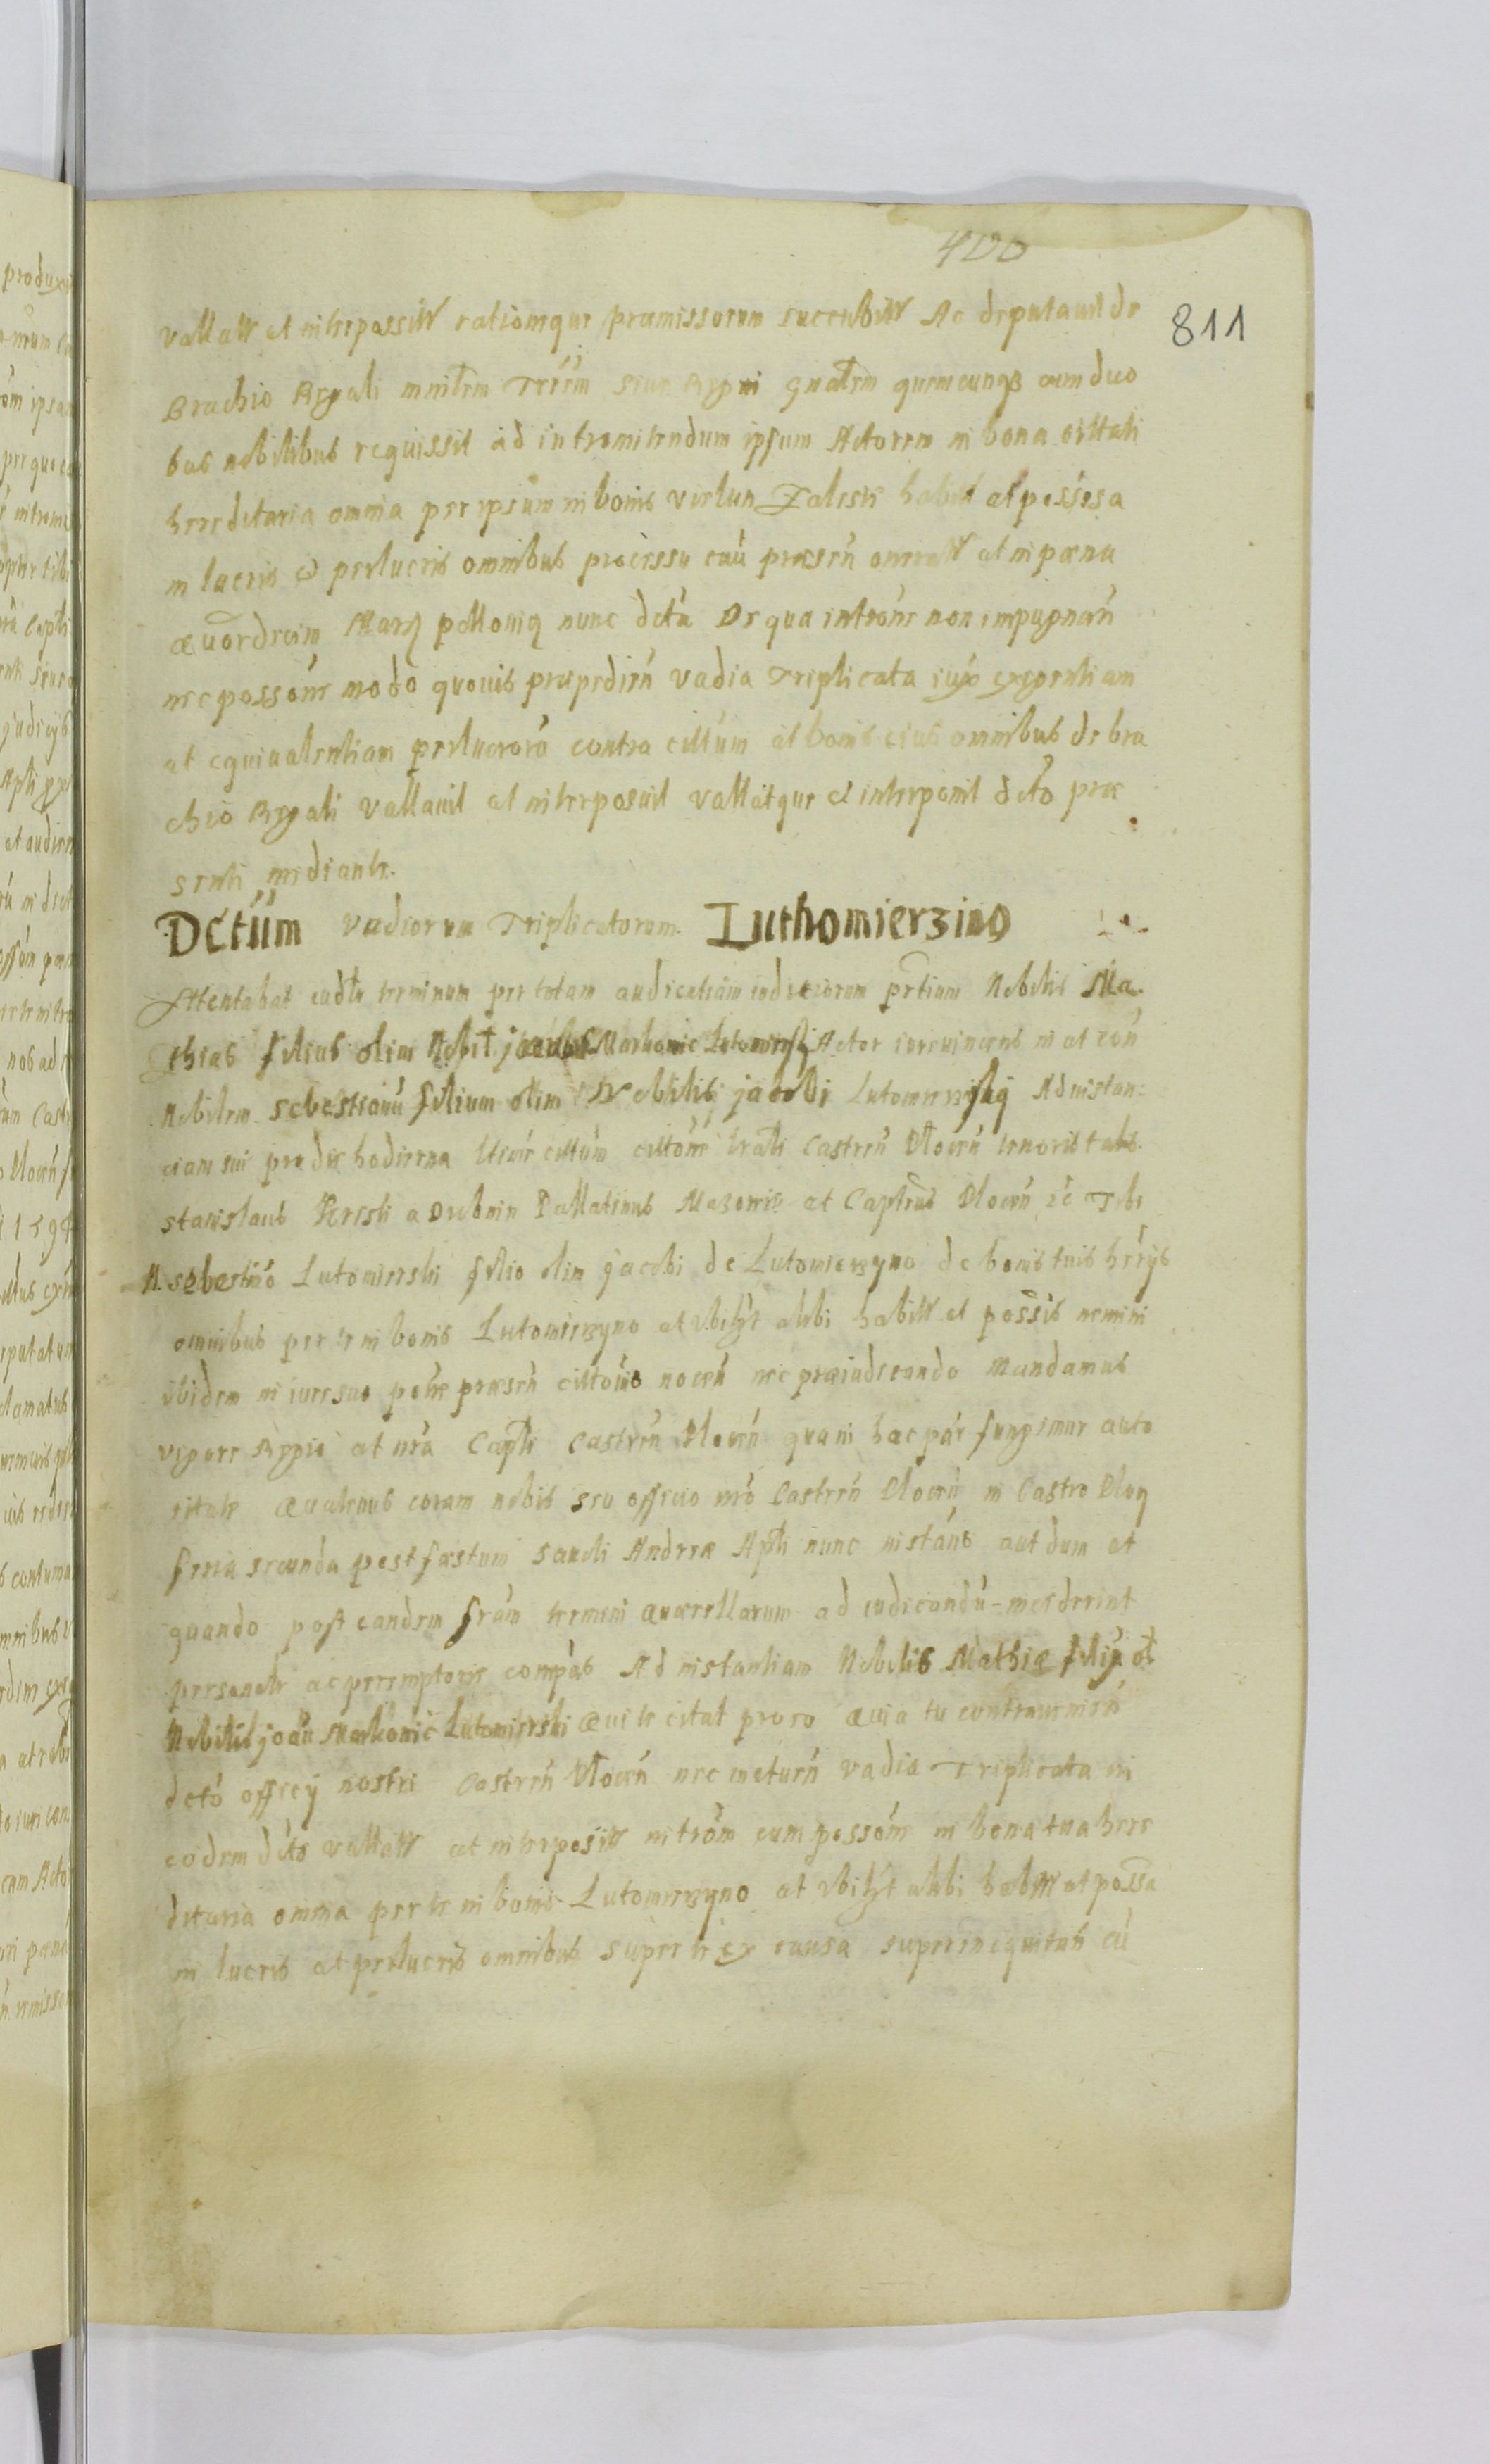 400
811
vallatt et interpossitt rationeque praemissorum succubitt Ac deputavit de
Brachio Regali mnitrlm Trrím siue Regni gnalem quemcunqz cum duo
bus nobilibus requissit ad intromitendum ipsum Actorem in bona cittati
haereditaria omnia per ipsum in bonis habitt at possesa
in lucris et perlucris omnibus processu cau praesen at in paena
quordecim Marg pollonicq nunc dcta De qua introne non impugnan
nec possone modo quouis praepedien vadia Triplicata iux exigentiam
at equivalentiam perlucroru contra cittum at bonis eius omnibus de bra
chio Regali vallauit at interposuit vallatque et interponit dcto prae
senti mediante.
Dctum vadiorum Triplicatorum. Luthomierzino
Attentabat eudtu terminum per totam audientiam iudiciorum prtium Nobilis Ma
thias filius olim Nobil Markowic Lutomirsky Actor in at con
Nobilem sebestianu filium olim Nobilis jacobi Lutomirsky Ad instan=
ciam sui pro die hodierna cittum cittone Castren Plocen tenoris talis
stanislaus Kriski a Drobnin Pallatinus Mazowie at Captneus Plocen ec Tibi
N. sebestino Lutomirski filio olim jacobi de Lutomierzyno de bonis tuis hrrijs
omnibus per te in bonis Lutomierzyno at vbihzt alibi habitt et possis nemini
ibidem in iure suo praesen cittonis nocen nec praeiudicando Mandamus
vigore Regie at nra Captli Castren Plocen qua in hac par fungimur auto
ritate Quatenus coram nobis seu officio nro Castren Plocen in Castro Plocq
feria secunda post faestum Sancti Andreae Apli nunc instans aut dum et
quando post eandem fram termini Quaerellarum ad iudicandu inciderint
personalr ac peremptorie compas Ad instantiam Nobilis Mathiae filij ol
Nobilis joan Markowic Lutomirski Qui te citat pro eo Quia tu contrauenien
dcto officij nostri Castren Plocen nec metuen vadia Triplicata in
eodem dcto vallatt at interpositt introm cum possone in bona tua here
ditaria omnia per te in bonis Lutomierzyno at vbihzt alibi habitt at possa
in lucris at perlucris omnibus super te ex causa cu